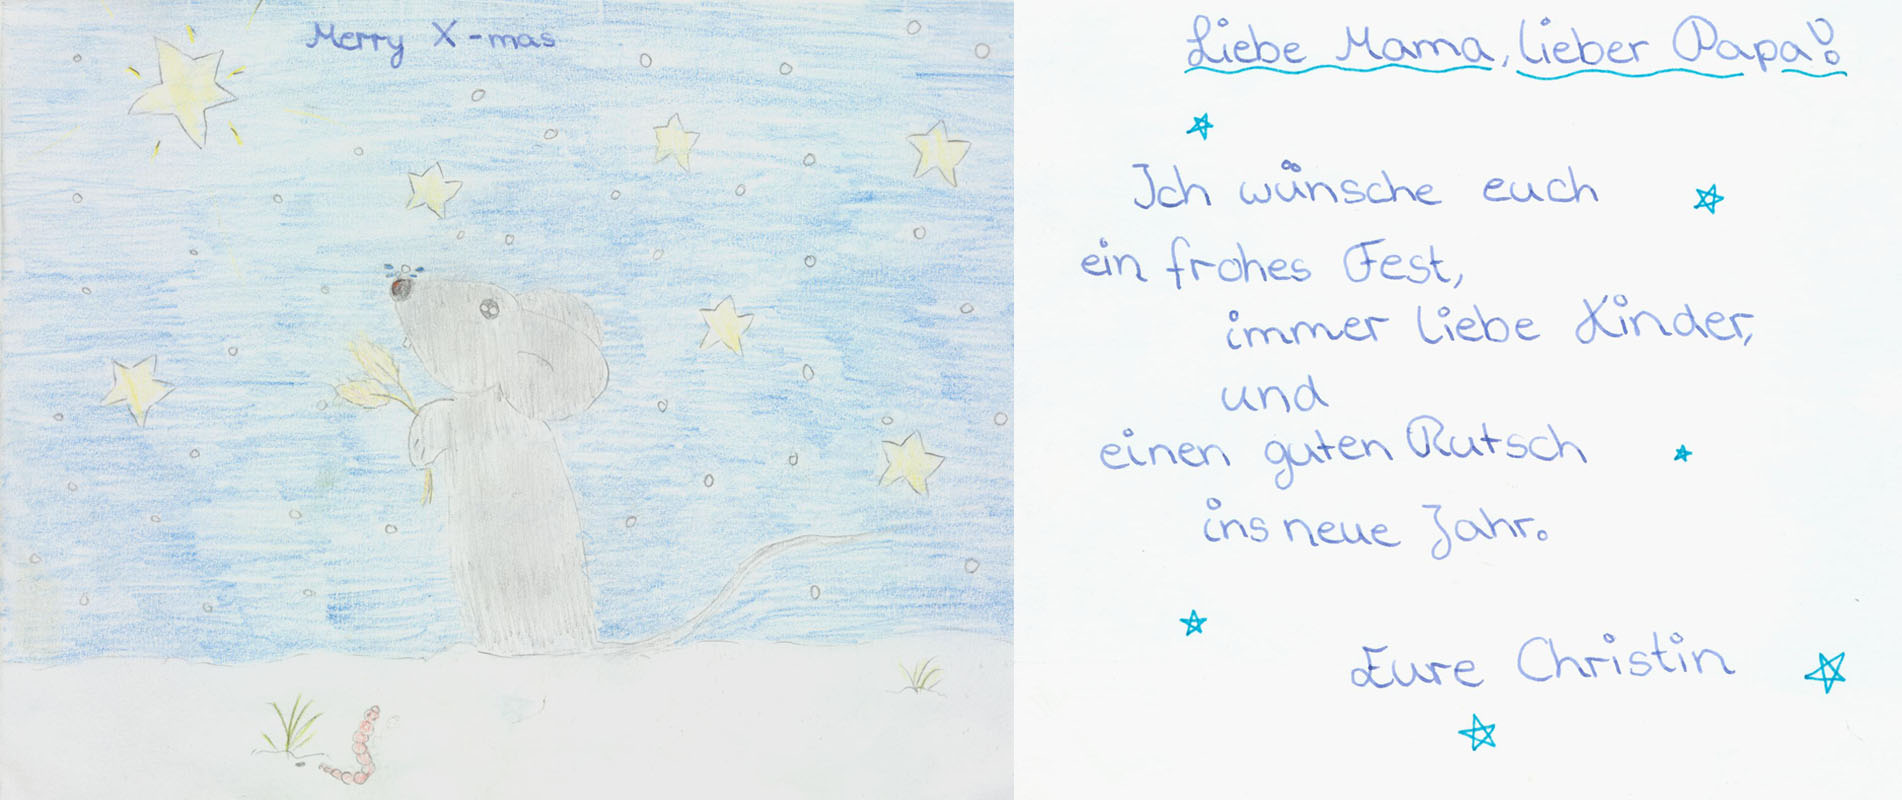 Merry X-mas
Liebe Mama, lieber Papa!
Ich wünsche euch
ein frohes Fest,
immer liebe Kinder,
und
einen guten Rutsch
ins neue Jahr.
Eure Christin